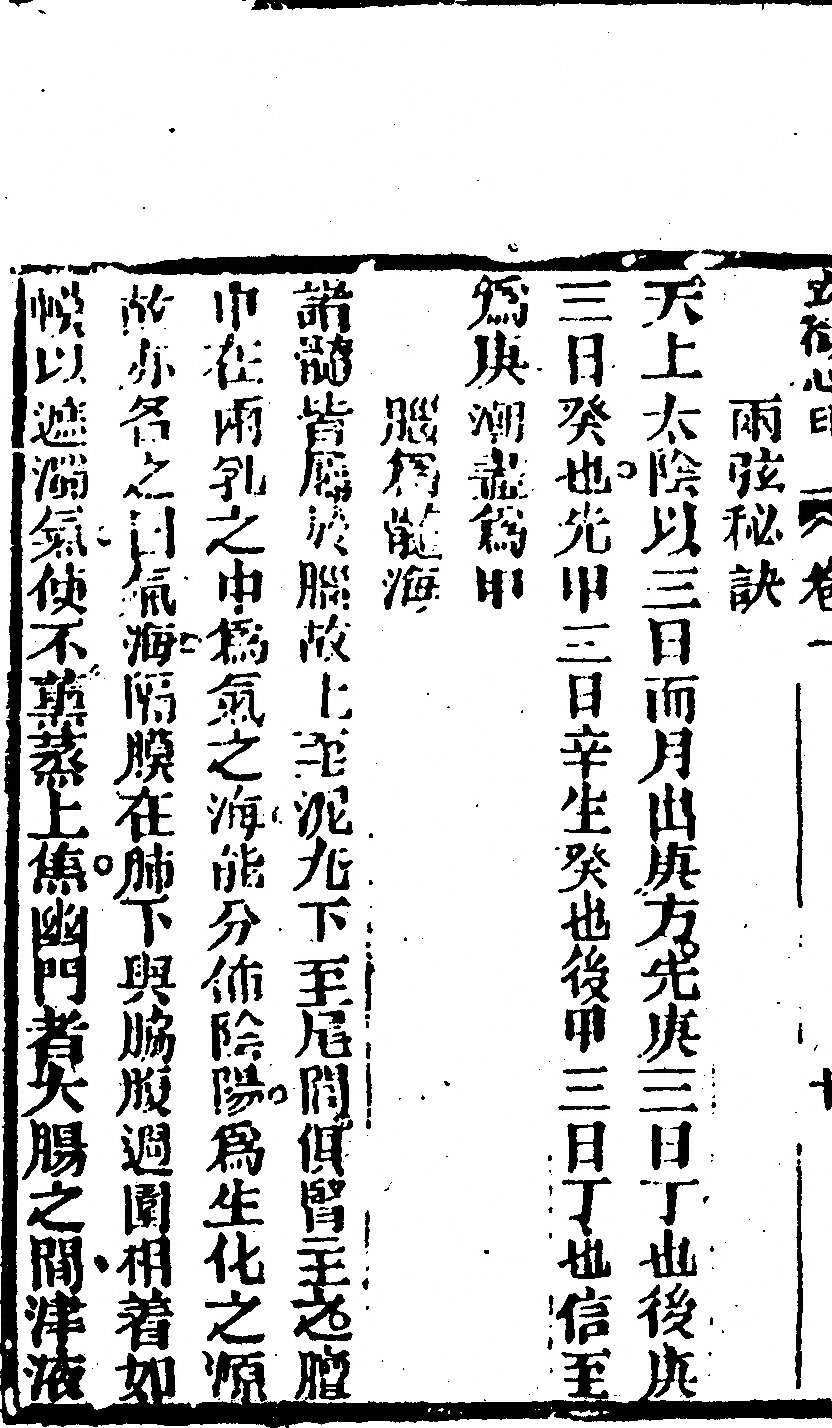 卷一
十
兩弦秘訣
天上太陰以三日而月出庚方先庚三日丁也後庚
三日癸也先甲三日辛生癸也後甲三日丁也信至
爲庚潮盡爲甲
腦爲髓海
諸髓皆屬於腦故上至泥丸下至尾閭俱腎主之膻
中在兩乳之中爲氣之海能分佈陰陽爲生化之源
故亦名之曰氣海隔膜在肺下與脇腹週圍相着如
幙以遮濁氣使不薰蒸上焦幽門者大腸之間津液